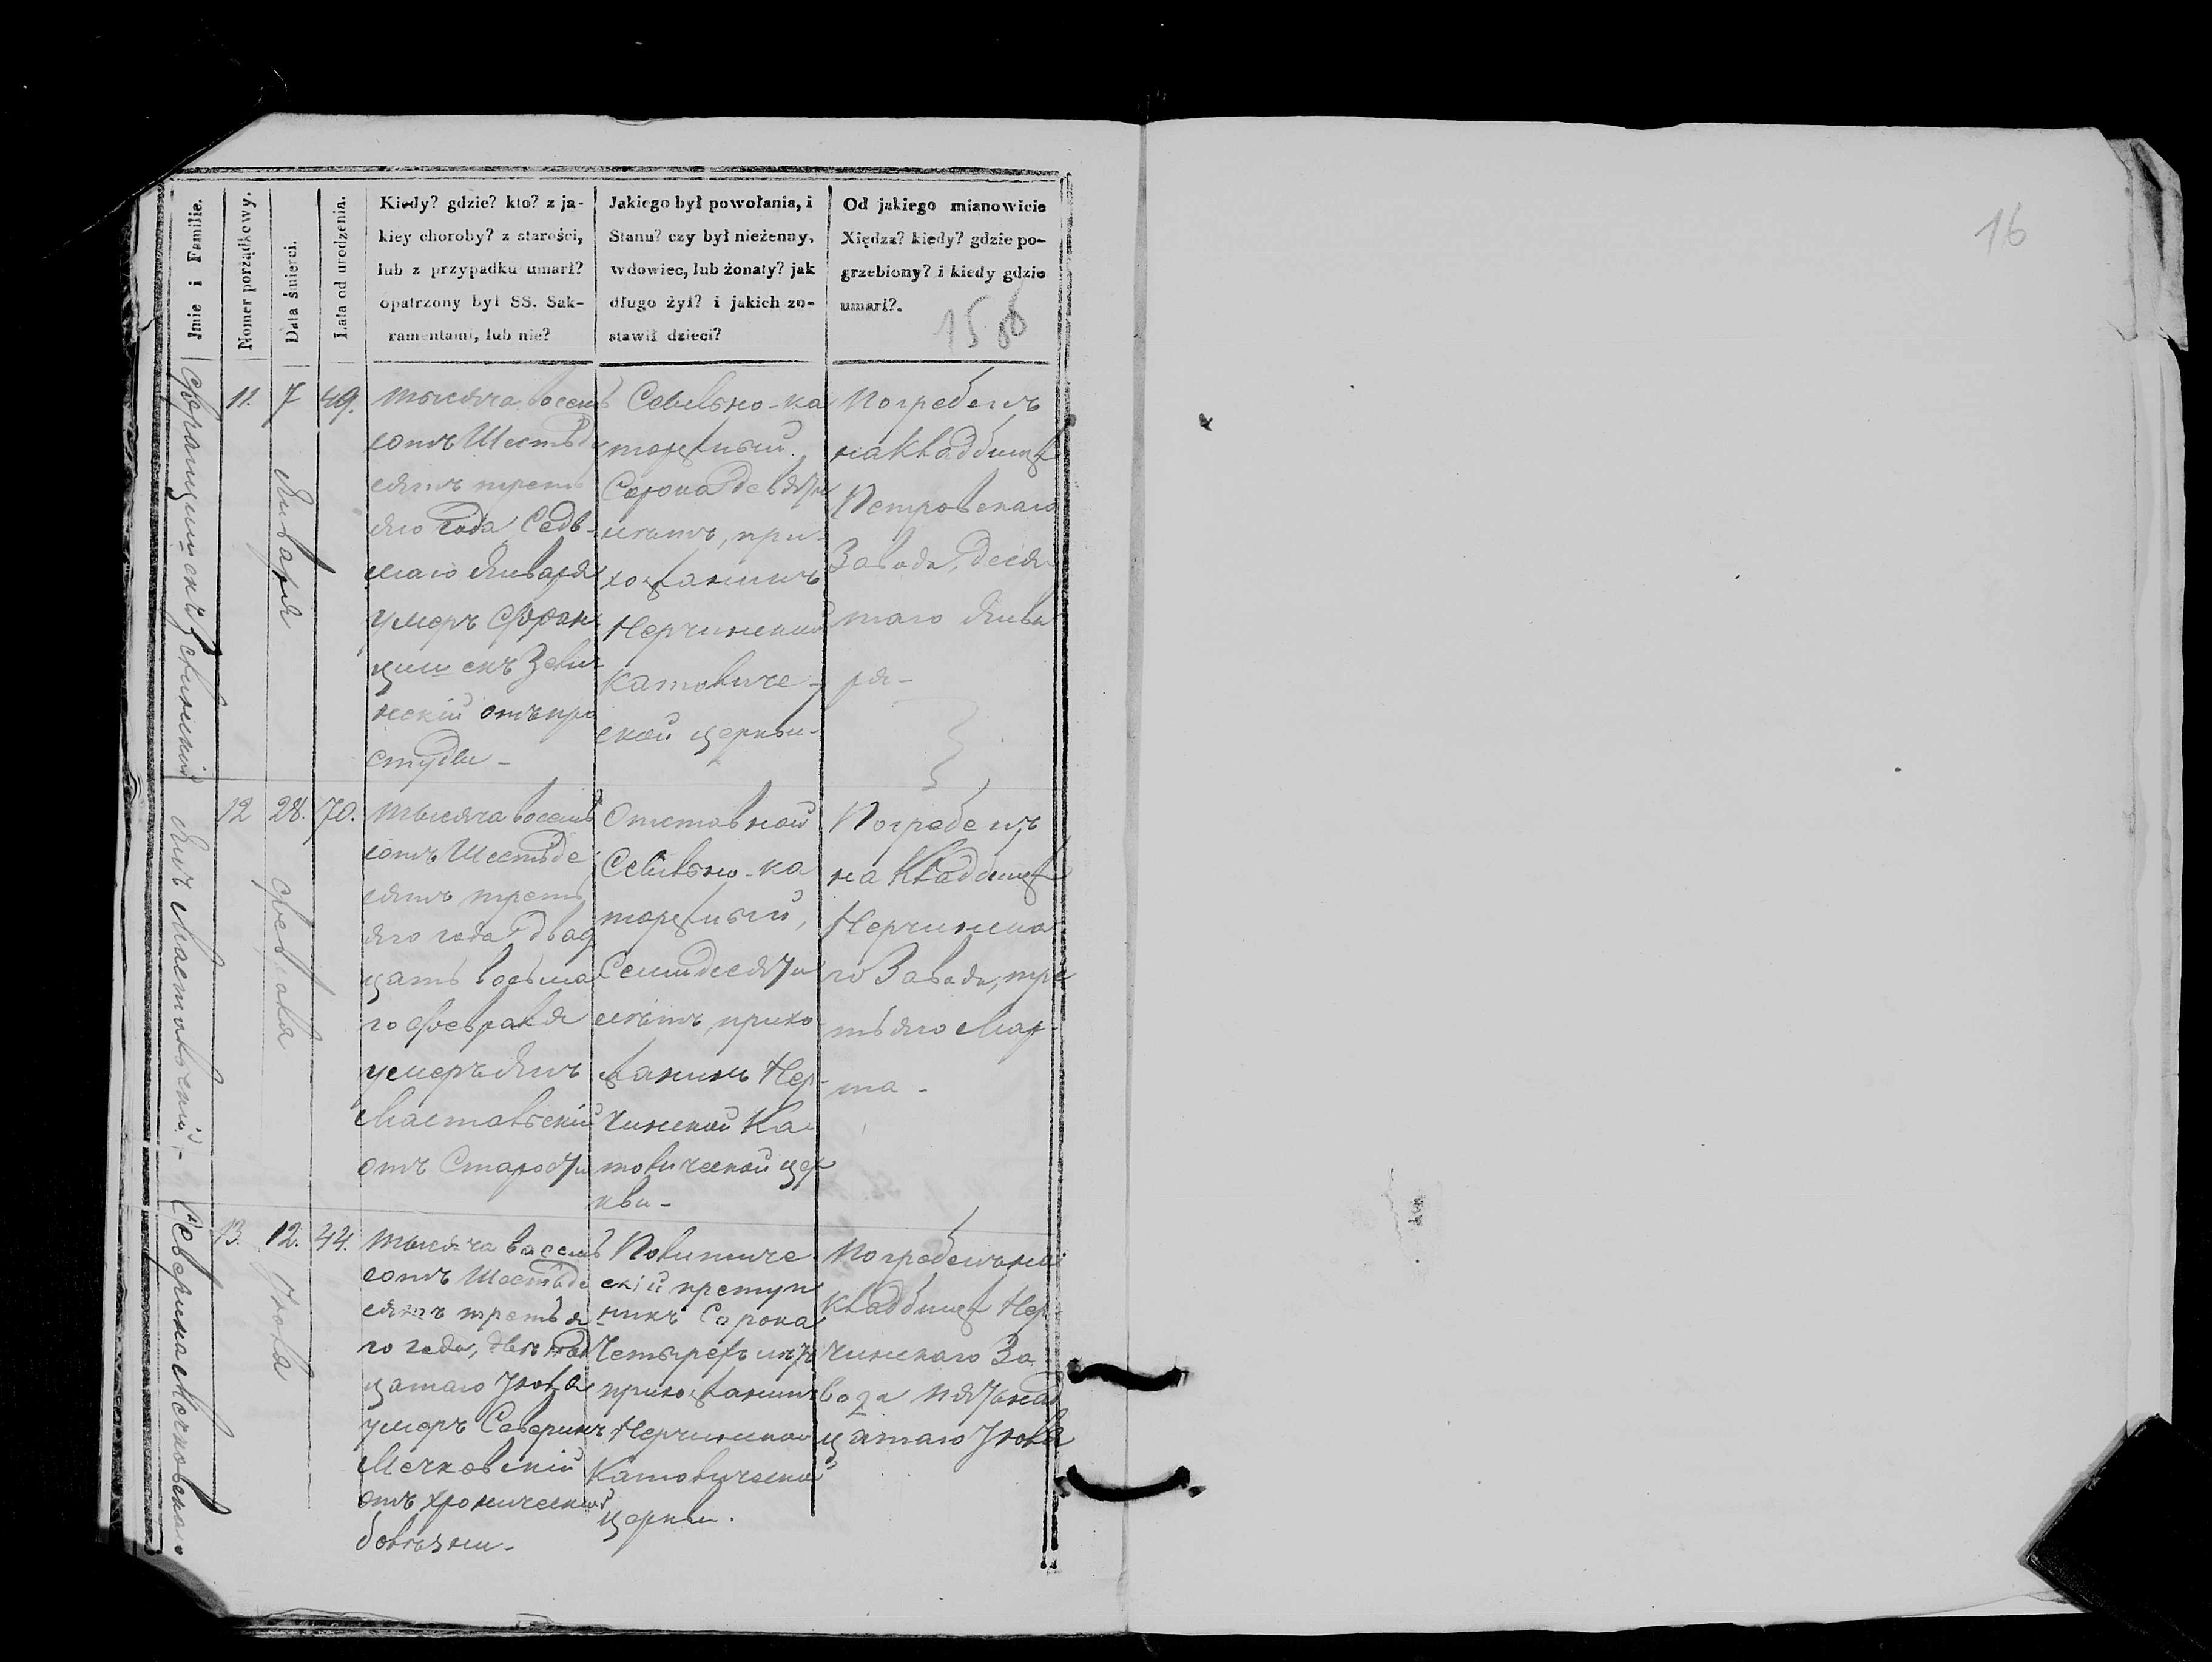 16
Imie i Familie.
Nomer porządkowy.
Data śmierci.
Lata od urodzenia.
Kiedy? gdzie? kto? z ja-
kiey choroby? z starości,
lub z przypadku umarł?
opatrzony był SS. Sak-
ramentami, lub nie?
Jakiego był powołania, i
Stanu? czy był nieżenny,
wdowiec, lub żonaty? jak
długo żył? i jakich zo-
stawił dzieci?
Od jakiego mianowicie
Xiędza? kiedy? gdzie po-
grzebiony? i kiedy gdzie
umarł?.
15 об
Францишекъ
11.
7
Января
49.
тысяча восемь
сотъ Шестьде
сятъ треть
яго года, Седь-
маго Января
умеръ Фран
цишекъ Зелин
нскій отъ про
студы -
Сельно-ка
торжный.
Сорока девяти
лѣтъ, при-
хожанинъ
Нерчинской
Католиче-
ской церкви-
Погребенъ
на кладбищѣ
Петровскаго
Завода, деся
таго Янва
ря-
Янъ Мастальскій.-
12
28.
Февраля
70.
тысяча восемь
сотъ Шестьде
сятъ треть
яго года двад
цать восьма
го февраля
умеръ Янъ
Мастальскій
отъ Старости
Отставной
Сельно-ка
торжный,
Семидесяти
лѣтъ, прихо
жанинъ Нер-
чинской Ка
толической цер
кви-
Погребенъ
на Кладбищѣ
Нерчинска
го Завода, тре
тьяго Мар-
та -
Северина Мечковскаго
13.
12.
Іюля
44.
тысяча восемь
сотъ Шестьде
сятъ третья
го года,
цатаго Іюля
умеръ Северинъ
Мечковскій
отъ хронической
болѣзни-
Политиче
скій преступ
никъ Сорока
Четырехъ лѣтъ
прихожанинъ
Нерчинской
Католической
церкви.
Погребенъ на
кладбищѣ Нер-
чинскаго За
вода пятьнад
цатаго Іюля